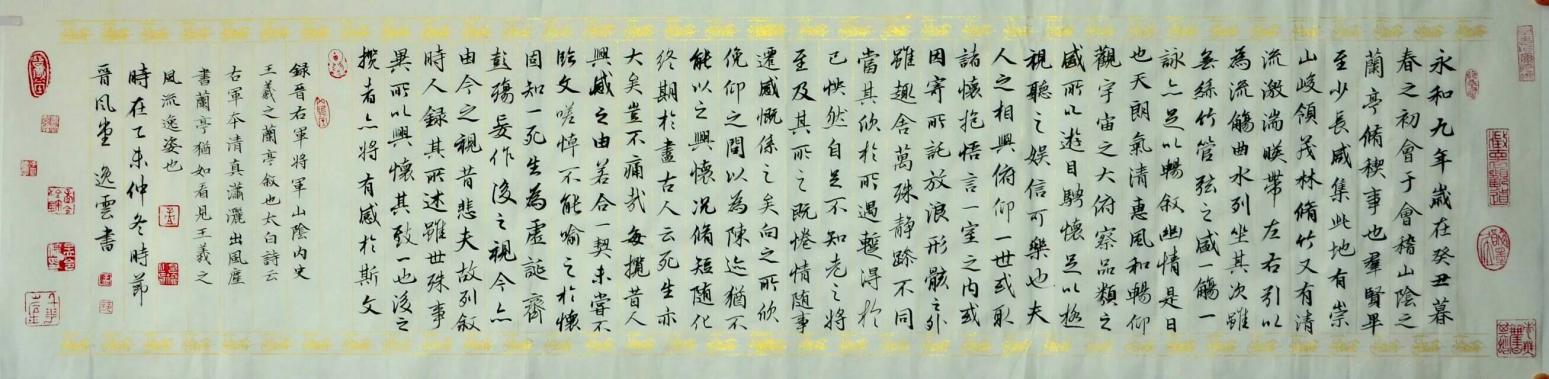 永和九年歲在癸丑暮
春之初會于會稽山陰之
蘭亭脩稧事也羣賢畢
至少長咸集此地有崇
山峻領茂林脩竹又有清
流激湍暎帶左右引以
為流觴曲水列坐其次雖
無絲竹管弦之盛一觴一
詠亦足以暢敘幽情是日
也天朗氣清惠風和暢仰
觀宇宙之大俯察品類之
盛所以遊目騁懷足以極
視聽之娛信可樂也夫
人之相與俯仰一世或取
諸懷抱悟言一室之內或
因寄所託放浪形骸之外
雖趣舍萬殊靜躁不同
當其欣於所遇暫得於
己怏然自足不知老之將
至及其所之既惓情随事
遷感慨係之矣向之所欣
俛仰之間以為陳迹猶不
能以之興懷况脩短随化
終期於盡古人云死生亦
大矣豈不痛哉每攬昔人
興感之由若合一契未嘗不
臨文嗟悼不能喻之於懷
固知一死生為虛誕齊
彭殤妄作後之視今亦
由今之視昔悲夫故列敘
時人錄其所述雖世殊事
異所以興懷其致一也後之
攬者亦將有感於斯文
錄晉右軍將軍山陰內史
王羲之蘭亭敘也太白詩云
右軍本清真瀟灑出風塵
書蘭亭猶如看見王羲之
風流逸姿也
時在乙未仲冬時節
晉風堂逸雲書